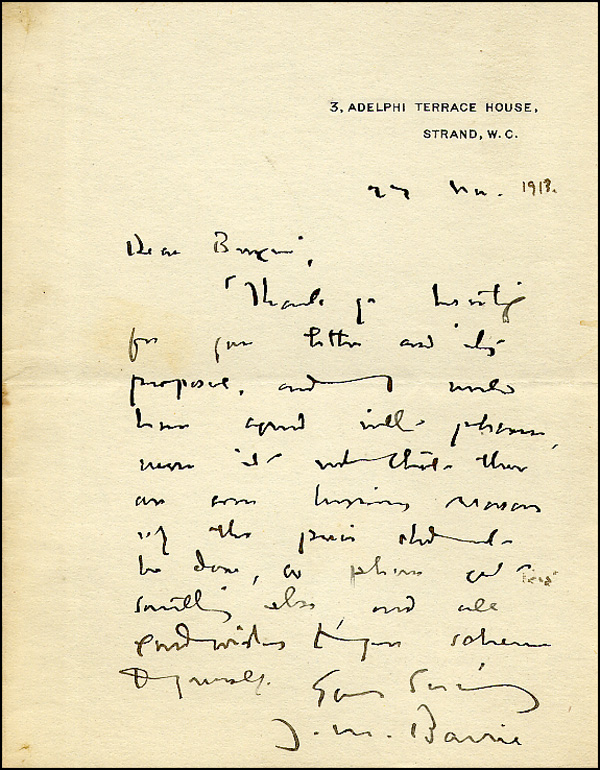 3, ADELPHI TERRACE HOUSE,
STRAND, W.C.
27 Nov. 1913.
Dear
Thank you heartily
for your letter and its
proposal, and I would
have agreed with pleasure,
were it not that there
are some business reasons
why the piece should not
be done, so please get
something else, and all
good wishes to your scheme
& yourself. Yours Sincerely
J. M. Barrie